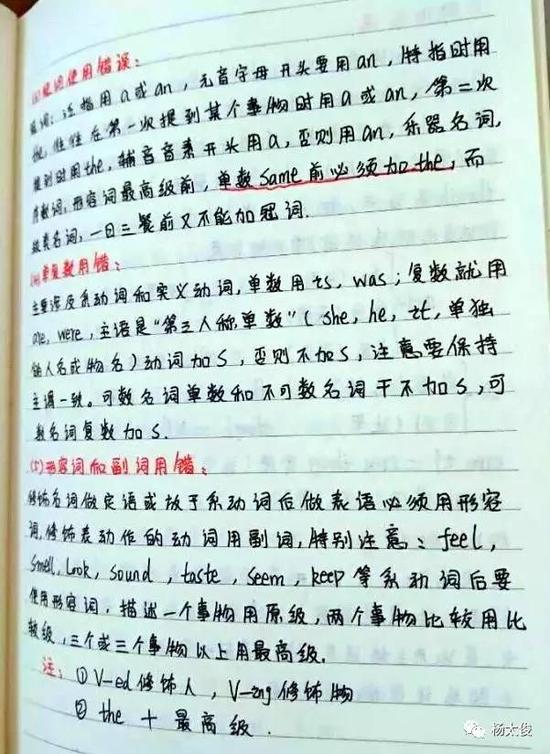 (3)冠词使用错误：
冠词：泛指用a或an，元音字母开头要用an，特指时用
the，往往在第一次提到某个事物时用a或an，第二次
提到时用the，辅音音素开头用a，否则用an，乐器名词，
序数词，形容词最高级前，单数same前必须加the，而
球类名词，一日三餐前又不能加冠词．
(4)单复数用错：
主要涉及系动词和实义动词，单数用is，was；复数就用
are，were，主语是“第三人称单数”（she，he，it，单独
的人名或物名）动词加s，否则不加s，注意要保持
主谓一致。可数名词单数和不可数名词干不加s，可
数名词复数加s．
(5)形容词和副词用错：
修饰名词做定语或放于系动词后做表语必须用形容
词，修饰表动作的动词用副词，特别注意：feel，
smell，look，sound，taste，seem，keep等系动词后要
使用形容词，描述一个事物用原级，两个事物比较用比
较级，三个或三个事物以上用最高级．
注：①V-ed修饰人，V-ing修饰物
②the＋最高级．
杨太俊